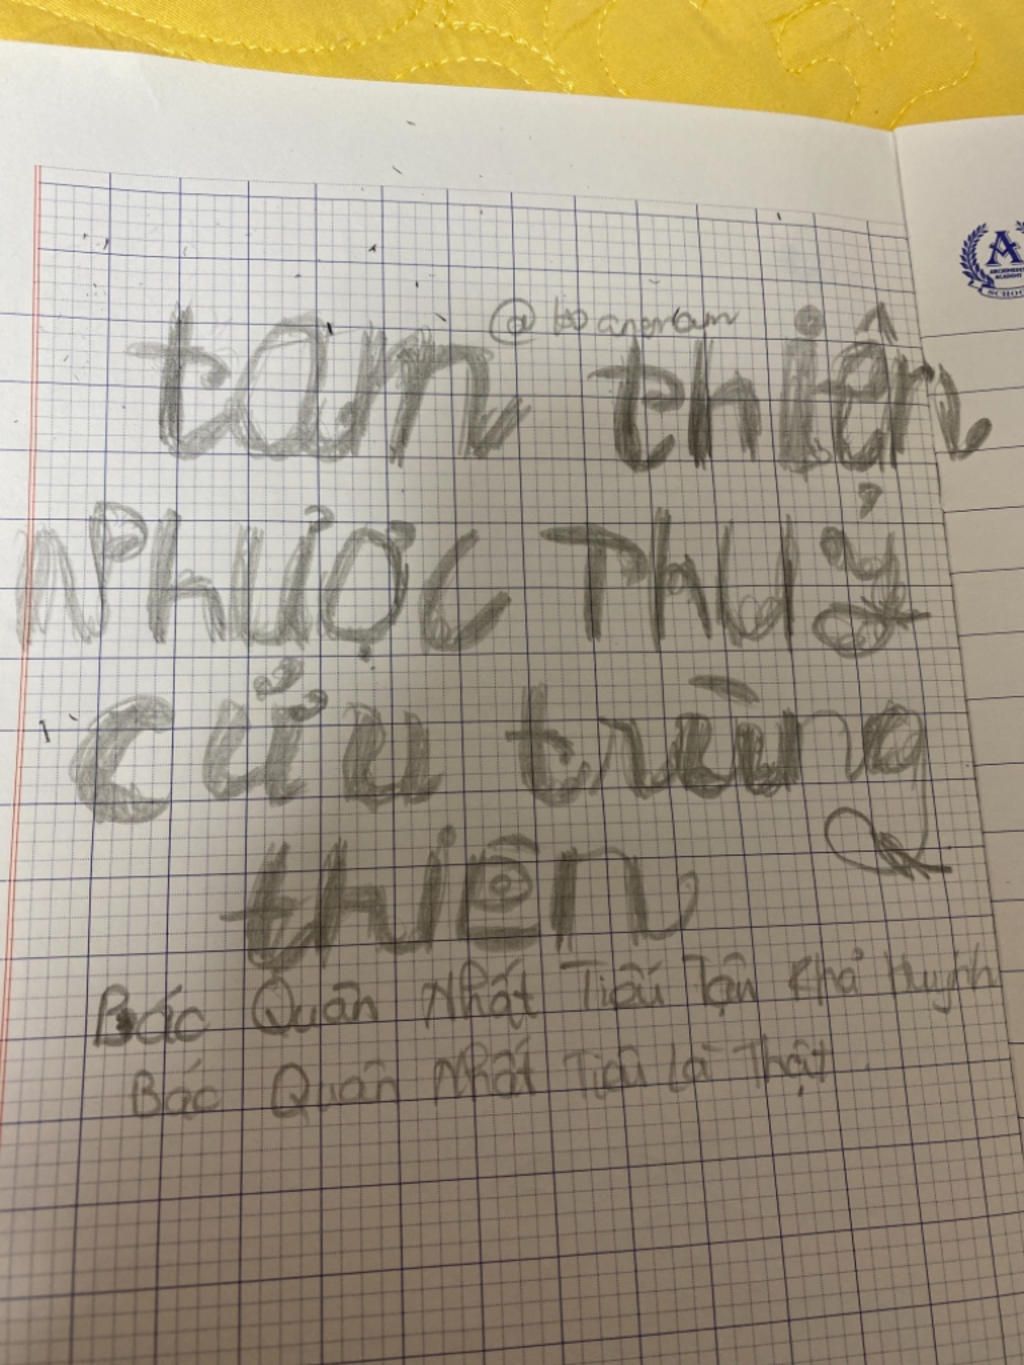 tam thiên
NHƯỢC THUỶ
cửu trùng
thiên
Bác Quân Nhất Tiếu Tận Khả Huynh
Bác Quân Nhất Tiếu Là Thật
A
ARCHIMEDES
ACADEMY
SCHOOL